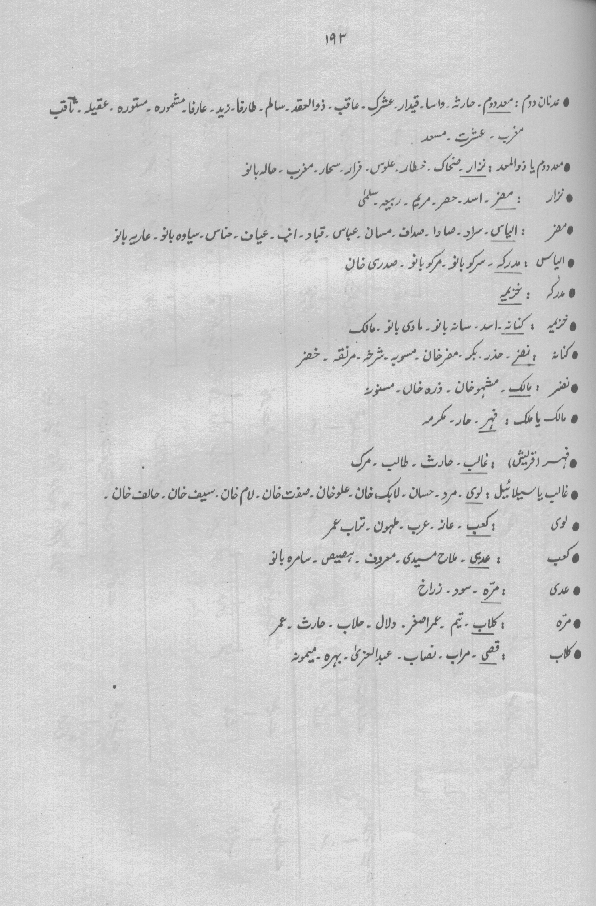 ۱۹۳
● عدنان دوم : معد دوم۔ حارثہ۔ واسا۔ قیدار۔ عشرک۔ عاقب۔ ذوالعقد۔ سالم۔ طارفا۔ زید۔ عارفا۔ مشمورہ۔ مستورہ۔ عقیلہ۔ ثاقب
مغرب۔ عشرت۔ مسعد
● معد دوم یا ذوالمعد : نزار۔ ضحاک۔ خطار۔ علوس۔ قرار۔ سحار۔ مغرب۔ حالہ بانو
● نزار : مضر۔ اسد۔ حصر۔ مریم۔ ربیعہ۔ سلمیٰ
● مضر : الیاس۔ سراد۔ صادا۔ صداف۔ مسان۔ عباس۔ قباد۔ انب۔ عیاف۔ حناس۔ سیاوہ بانو۔ عاربہ بانو
● الیاس : مدرکہ۔ سرکو بانو۔ مرکو بانو۔ صدری خان
● مدرکہ : خزیمہ
● خزیمہ : کنانہ۔ اسد۔ سانہ بانو۔ مادی بانو۔ مالک
● کنانہ : نضر۔ حذر۔ بکہ۔ مضر خان۔ مسویہ۔ شرخہ۔ مرنقہ۔ خضر
● نضر : مالک۔ مشہو خان۔ ذرہ خان۔ مسنونہ
● مالک یا ملک : فہر۔ حار۔ مکرمہ
● فہر (قریش) : غالب۔ حارث۔ طالب۔ مرک
● غالب یا سیلائیل : لوی۔ مرد۔ حسان۔ لابک خان۔ علو خان۔ صفت خان۔ لام خان۔ سیف خان۔ حالف خان۔
● لوی : کعب۔ عانہ۔ عرب۔ ملہون۔ تراب عمر
● کعب : عدی۔ ملاح مسیدی۔ معروف۔ ہصیص۔ سامرہ بانو
● عدی : مرّہ۔ سود۔ زراخ
● مرّہ : کلاب۔ تیم۔ عمر اصغر۔ دلال۔ حلاب۔ حارث۔ عمر
● کلاب : قصی۔ مراب۔ نصاب۔ عبدالعزیٰ۔ بہرہ۔ میمونہ